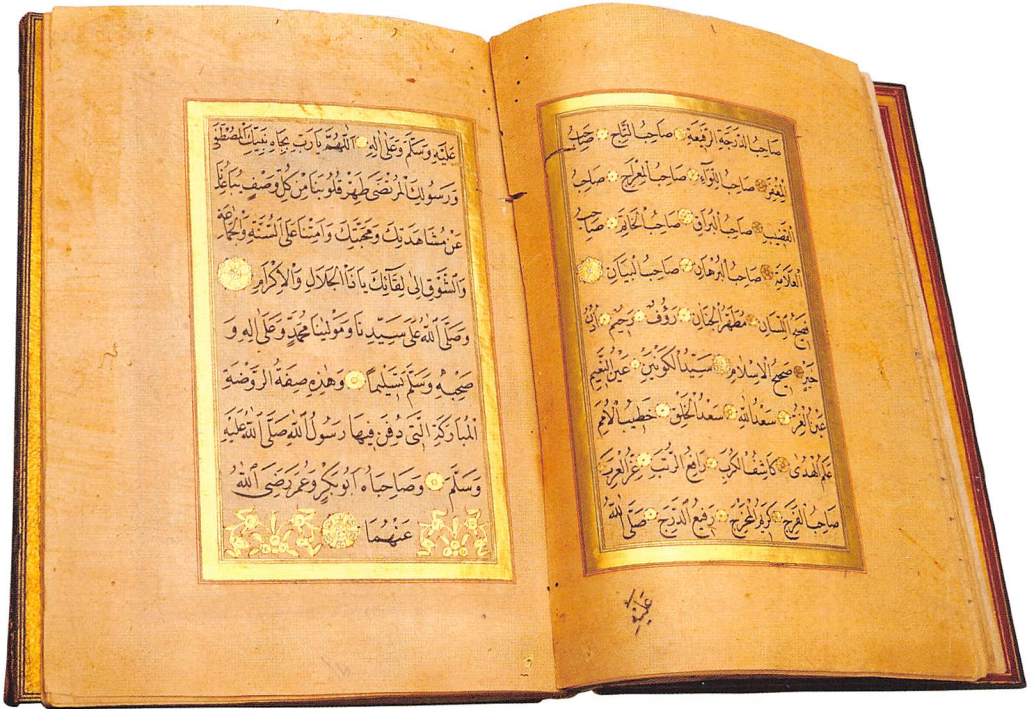 صَاحِبُ الدَّرَجَةِ الرَّفِيعَةِ صَاحِبُ التَّاجِ صَاحِبُ
الْمِغْفَرِ صَاحِبُ اللِّوَآءِ صَاحِبُ الْمِعْرَاجِ صَاحِبُ
الْقَضِيبِ صَاحِبُ الْبُرَاقِ صَاحِبُ الْخَاتَمِ صَاحِبُ
الْعَلَامَةِ صَاحِبُ الْبُرْهَانِ صَاحِبُ الْبَيَانِ
فَصِيحُ اللِّسَانِ مُطَهَّرُ الْجَنَانِ رَؤُفٌ رَحِيمٌ اُذُنُ
خَيْرٍ صَحِيحُ الْاِسْلَامِ سَيِّدُ الْكَوْنَيْنِ عَيْنُ النَّعِيمِ
عَيْنُ الْغُرِّ سَعْدُ اللّٰهِ سَعْدُ الْخَلْقِ خَطِيبُ الْاُمَمِ
عَلَمُ الْهُدٰى كَاشِفُ الْكُرَبِ رَافِعُ الرُّتَبِ عِزُّ الْعَرَبِ
صَاحِبُ الْفَرَجِ كَرِيمُ الْمَخْرَجِ رَفِيعُ الدَّرَجِ صَلَّى اللّٰهُ
عَلَيْهِ
عَلَيْهِ وَسَلَّمَ وَعَلٰى اٰلِهِ اَللّٰهُمَّ يَا رَبِّ بِجَاهِ نَبِيِّكَ الْمُصْطَفٰى
وَرَسُولِكَ الْمُرْتَضٰى طَهِّرْ قُلُوبَنَا مِنْ كُلِّ وَصْفٍ يُبَاعِدُنَا
عَنْ مُشَاهَدَتِكَ وَمَحَبَّتِكَ وَاَمِتْنَا عَلَى السُّنَّةِ وَالْجَمَاعَةِ
وَالشَّوْقِ اِلٰى لِقَآئِكَ يَا ذَا الْجَلَالِ وَالْاِكْرَامِ
وَصَلَّى اللّٰهُ عَلٰى سَيِّدِنَا وَمَوْلٰينَا مُحَمَّدٍ وَعَلٰى اٰلِهِ وَ
صَحْبِهِ وَسَلَّمَ تَسْلِيمًا وَهٰذِهِ صِفَةُ الرَّوْضَةِ
الْمُبَارَكَةِ الَّتِى دُفِنَ فِيهَا رَسُولُ اللّٰهِ صَلَّى اللّٰهُ عَلَيْهِ
وَسَلَّمَ وَصَاحِبَاهُ اَبُو بَكْرٍ وَعُمَرُ رَضِىَ اللّٰهُ
عَنْهُمَا